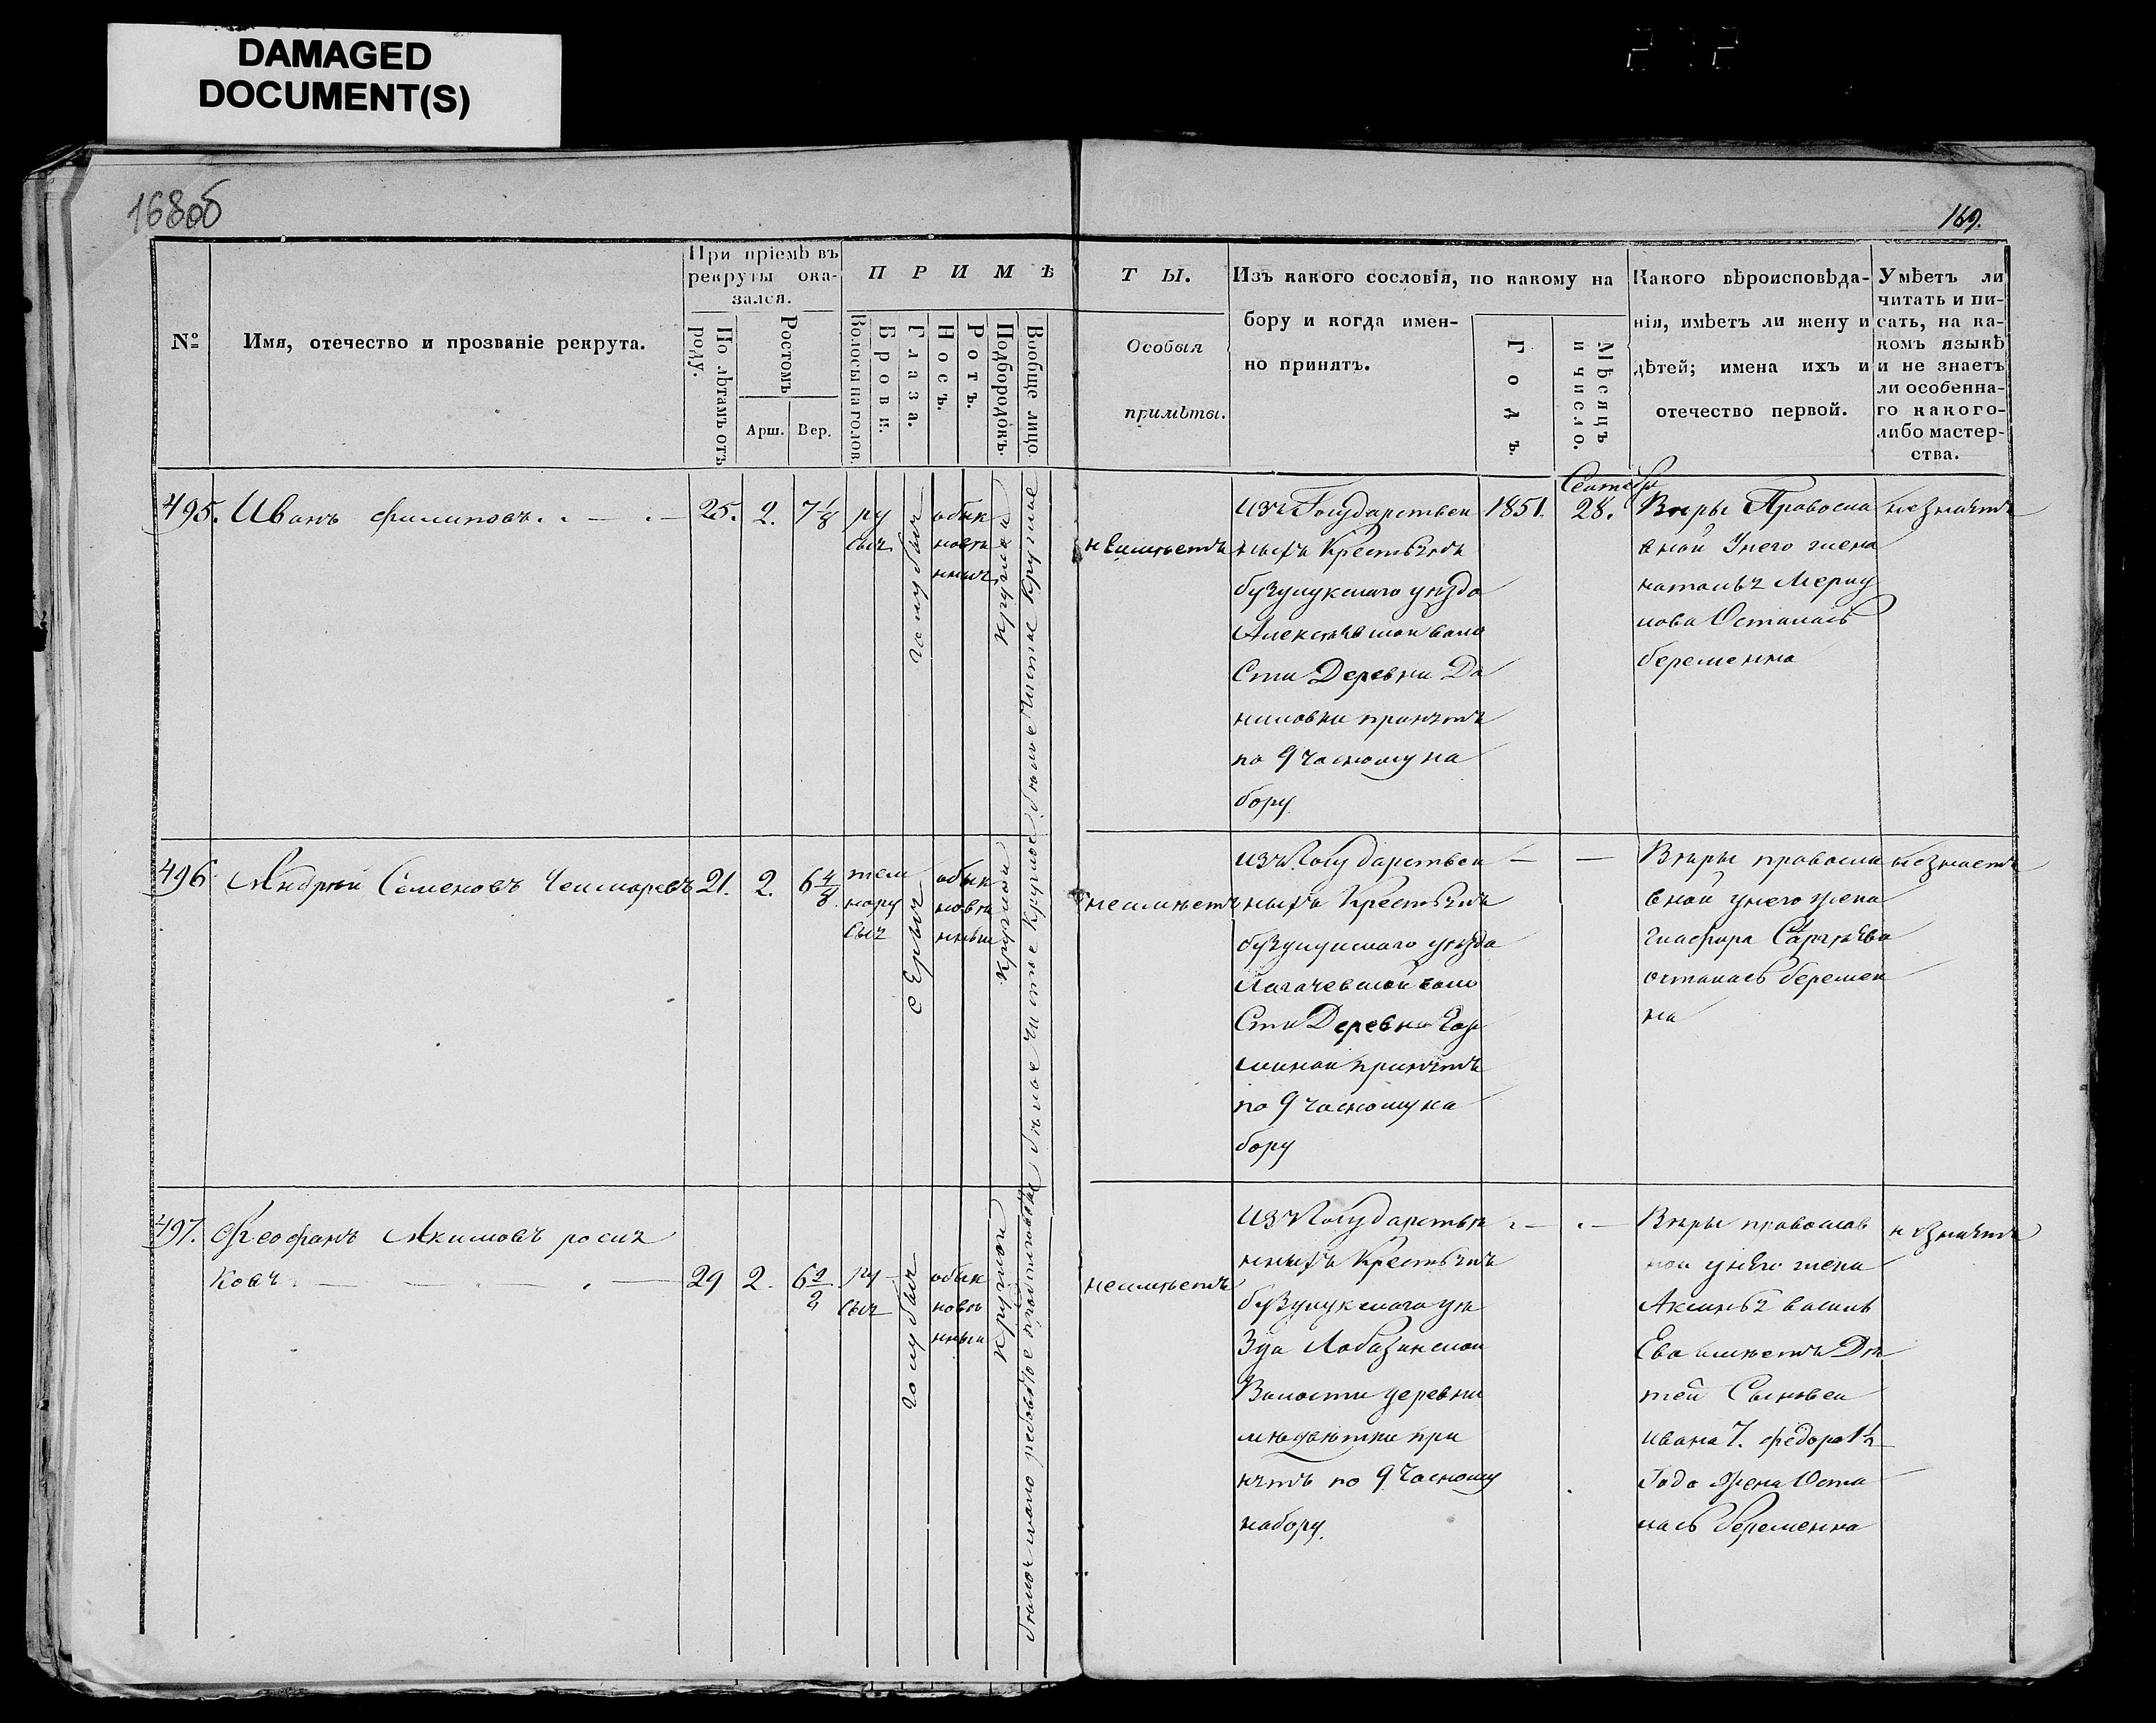 DAMAGED
DOCUMENT(S)
168об
169.
№
Имя, отечество и прозваніе рекрута.
При пріемѣ въ
рекруты ока-
зался.
По лѣтамъ отъ
роду.
Ростомъ
Арш.
Вер.
ПРИМѢ
Волосы на голов.
Брови.
Глаза.
Носъ.
Ротъ.
Подбородокъ.
Вообще лицо
ТЫ.
Особыя
примѣты.
Изъ какого сословія, по какому на
бору и когда имен-
но принятъ.
Годъ.
Мѣсяцъ
и число.
Какого вѣроисповѣда-
нія, имѣетъ ли жену и
дѣтей; имена ихъ и
отечество первой.
Умѣетъ ли
читать и пи-
сать, на ка-
комъ языкѣ
и не знаетъ
ли особенна-
го какого-
либо мастер-
ства.
495. Иванъ Филиповъ. 25. 2. 7 1/8
ру
сыя
голубыя
обык
новѣ
нныя
круглой
лице чистое круглое
неимѣетъ
изъ Государствен
ныхъ Крестьянъ
бузулукскаго уѣзда
Алексѣевской воло
Сти Деревни Да
ниловки принятъ
по 9 частному на
бору.
1851.
Сентебря
28.
Вѣры Правосла
вной Унего жена
наталья
Осталась
беременна
незнаетъ
496. Андрей Семеновъ 21. 2. 6 4/8
тем
нору
сыя
сЕрыя
обык
новѣ
нныи
круглой
лице чистое круглое
неимѣетъ
изъ Государствен
ныхъ Крестьянъ
бузулукскаго уѣзда
воло
Сти Деревни
принятъ
по 9 частному на
бору
Вѣры правосла
вной унего жена
глафира Сергѣева
осталась беремен
на
незнаетъ
497. Феофанъ Акимовъ росля
ковъ 29 2. 6 2/2
ру
сыя
голубыя
обык
новѣ
нныи
круглой
неимѣетъ
Изъ Государствѣ
нныхъ Крестьянъ
бузулукскаго уѣ
Зда Лобазинской
Волости деревни
при
нятъ по 9 Частному
набору.
Вѣры православ
ной унего жена
Аксинья василь
Ева имѣетъ Дѣ
тей Сыновеи
ивана 7. федора 1 1/2
Года Жена Оста
лась беременна
незнаетъ